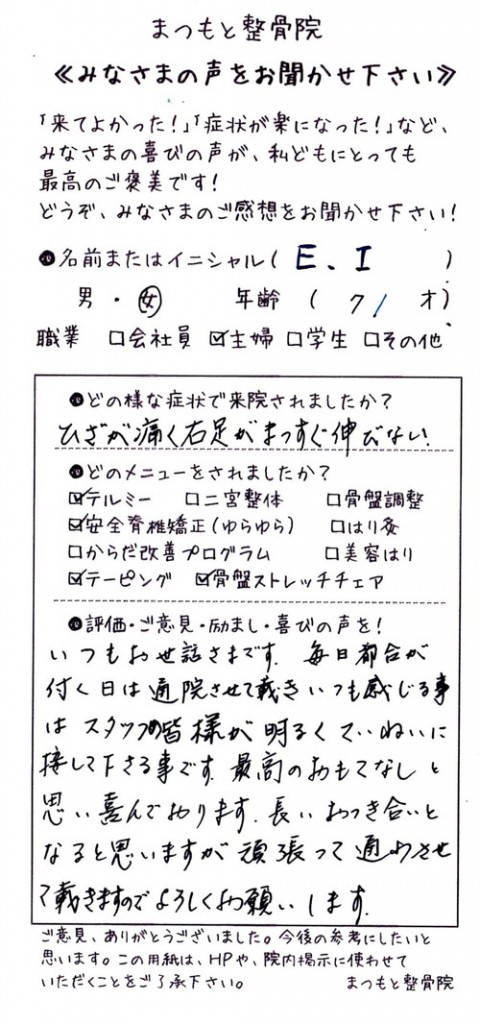 まつもと整骨院
≪みなさまの声をお聞かせ下さい≫
「来てよかった!」「症状が楽になった!」など、
みなさまの喜びの声が、私どもにとっても
最高のご褒美です!
どうぞ、みなさまのご感想をお聞かせ下さい!
●名前またはイニシャル( E、I )
男・女 年齢 ( 71 才)
職業 □会社員 ☑主婦 □学生 □その他
●どの様な症状で来院されましたか?
ひざが痛く右足がまっすぐ伸びない.
●どのメニューをされましたか?
☑テルミー □二宮整体 □骨盤調整
☑安全脊椎矯正(ゆらゆら) □はり灸
□からだ改善プログラム □美容はり
☑テーピング ☑骨盤ストレッチチェア
●評価・ご意見・励まし・喜びの声を!
いつもお世話さまです. 毎日都合が
付く日は通院させて戴きいつも感じる事
は スタッフの皆様が 明るく ていねいに
接して下さる事です. 最高のおもてなしと
思い喜んでおります. 長いおつき合いと
なると思いますが 頑張って 通わさせ
て戴きますのでよろしくお願いします.
ご意見、ありがとうございました。今後の参考にしたいと
思います。この用紙は、HPや、院内掲示に使わせて
いただくことをご了承下さい。 まつもと整骨院